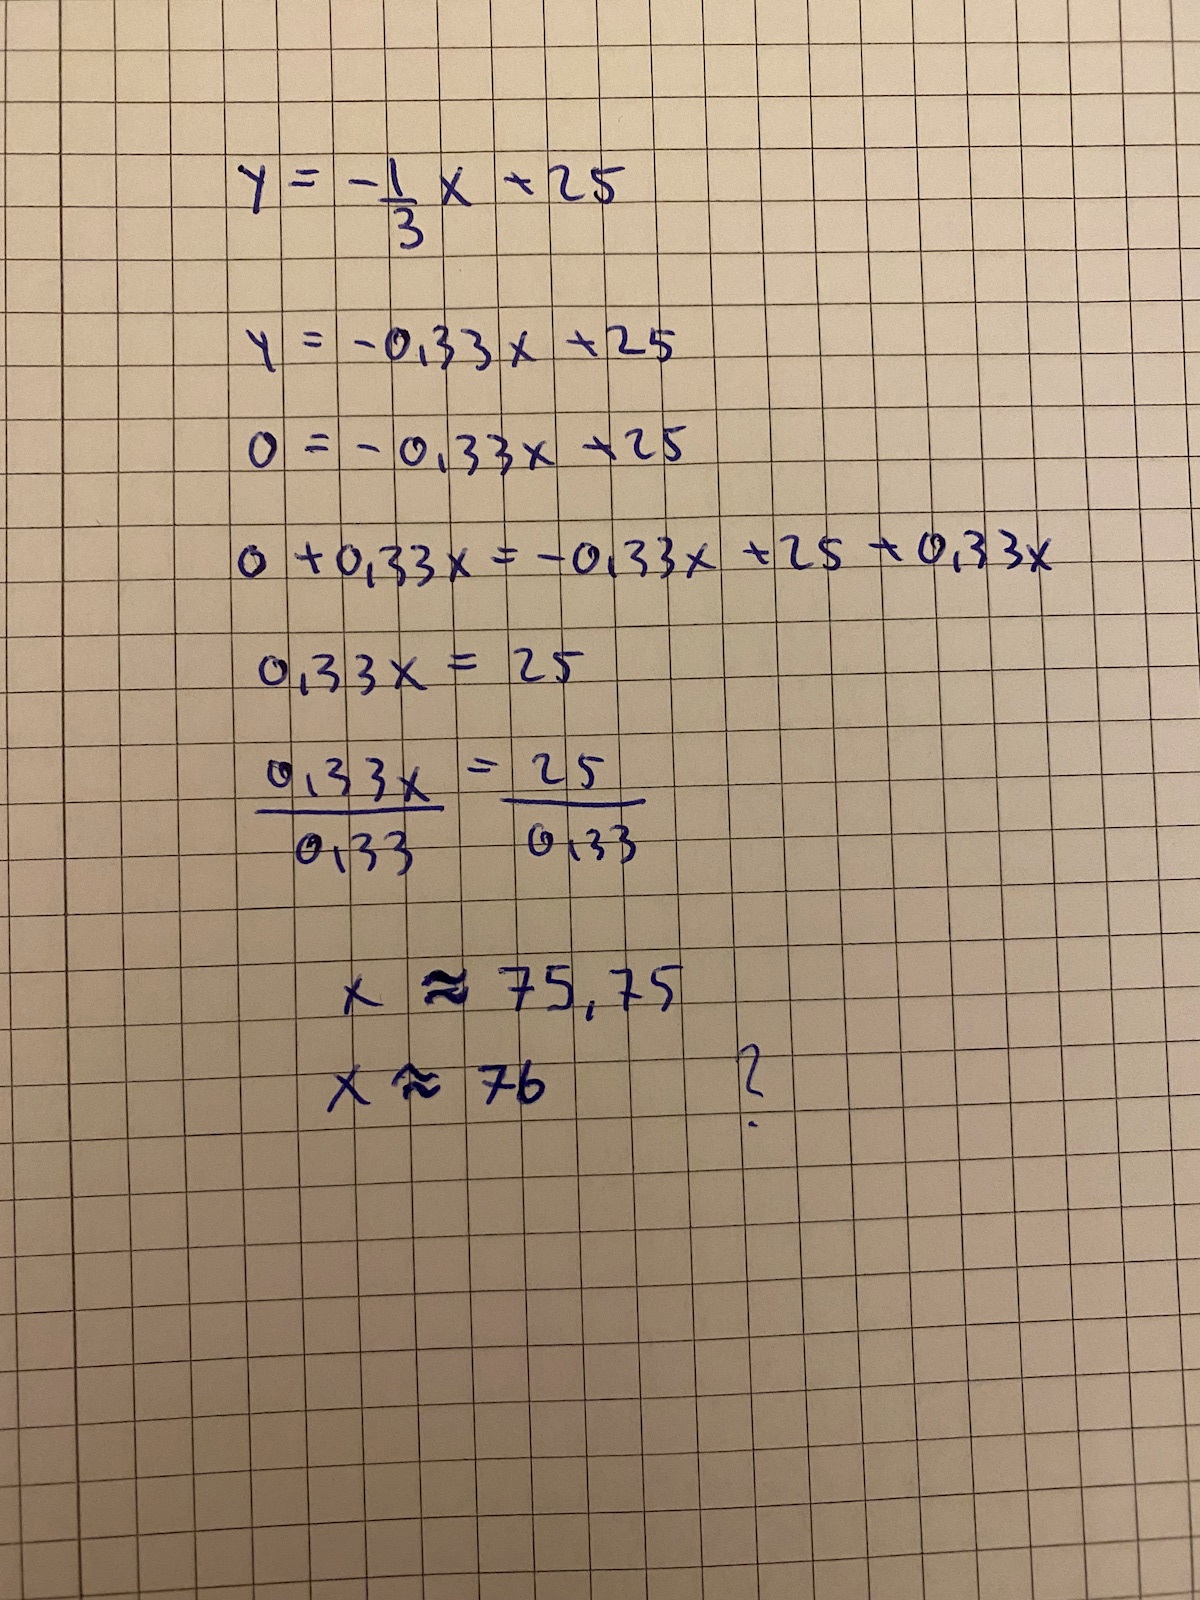 y = -1/3 x + 25
y = -0,33x + 25
0 = -0,33x + 25
0 + 0,33x = -0,33x + 25 + 0,33x
0,33x = 25
0,33x/0,33 = 25/0,33
x ≈ 75,75
x ≈ 76 ?